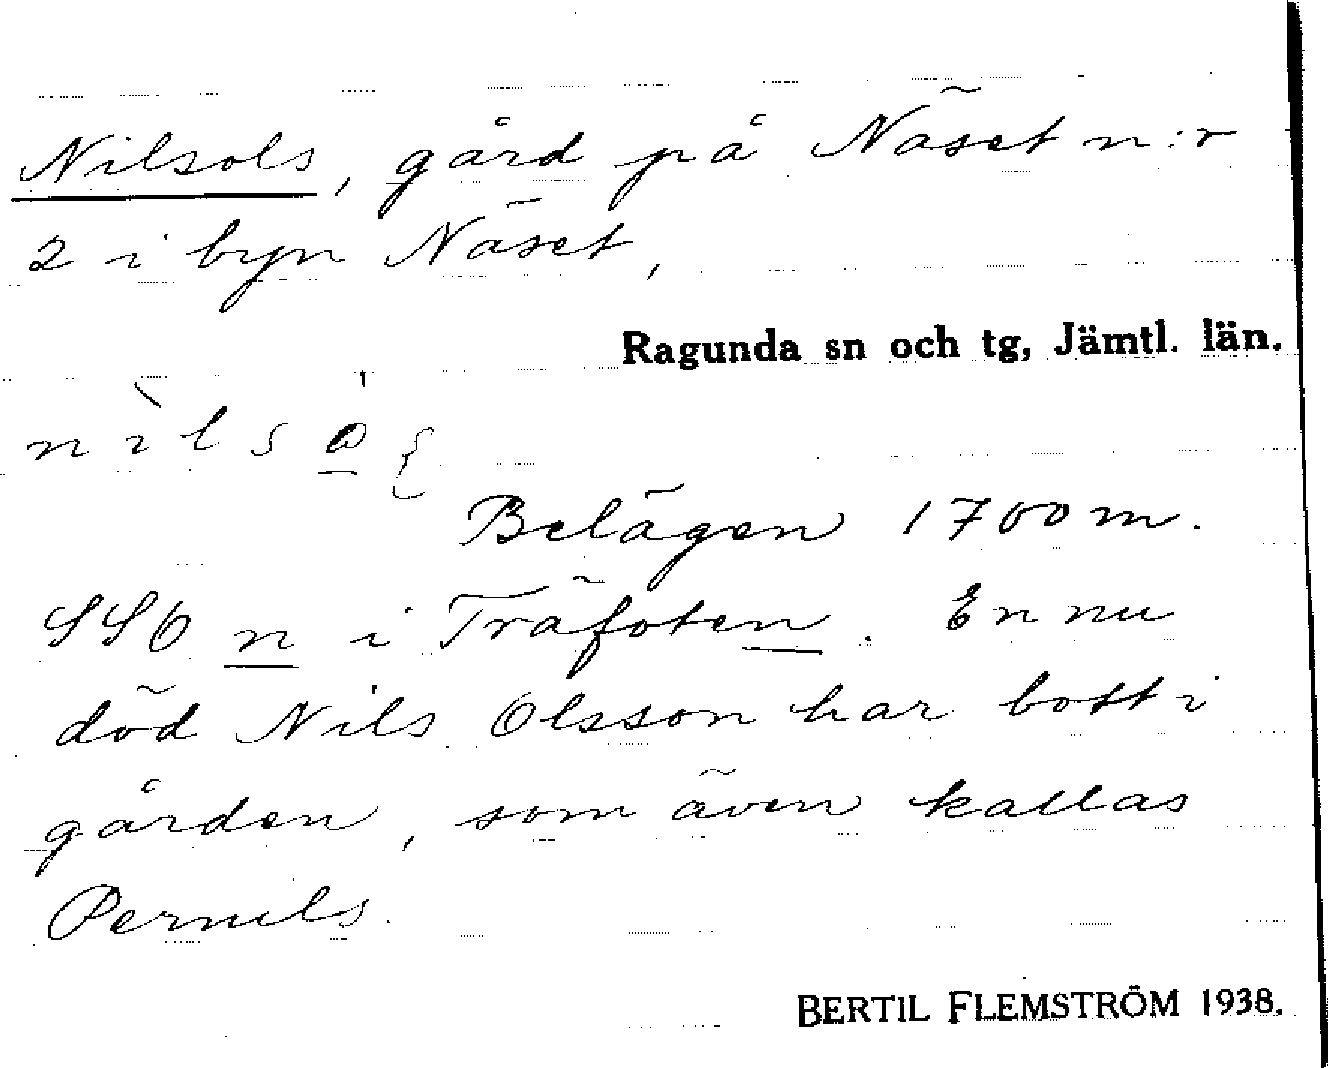 Nilsols, gård på Näset n:r
2 i byn Näset,
Ragunda sn och tg, Jämtl. län.
Belägen 1700 m.
SSO n i Träfoten. En nu
död Nils Olsson har bott i
gården, som även kallas
Pernils.
BERTIL FLEMSTRÖM 1938.